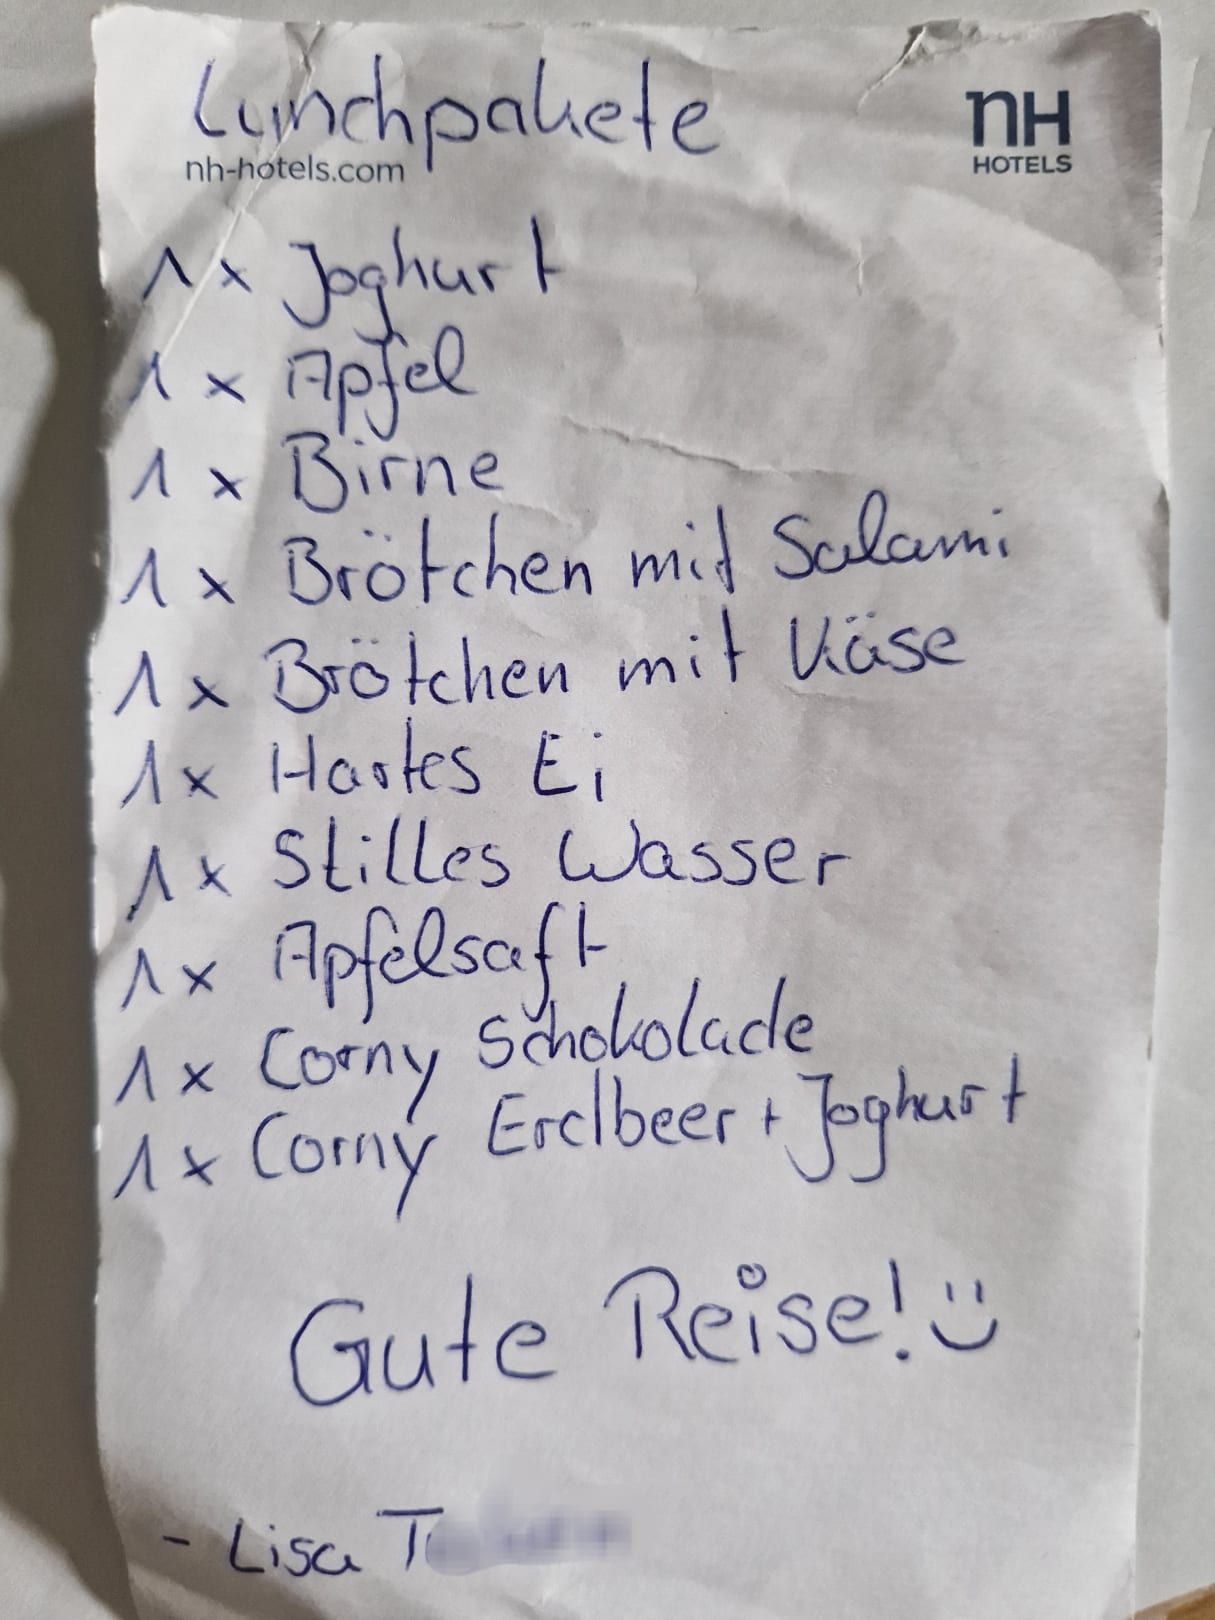 Lunchpakete
nh-hotels.com
nH
HOTELS
1 x Joghurt
1 x Apfel
1 x Birne
1 x Brötchen mit Salami
1 x Brötchen mit Käse
1 x Hartes Ei
1 x Stilles Wasser
1 x Apfelsaft
1 x Corny Schokolade
1 x Corny Erdbeer + Joghurt
Gute Reise!
- Lisa